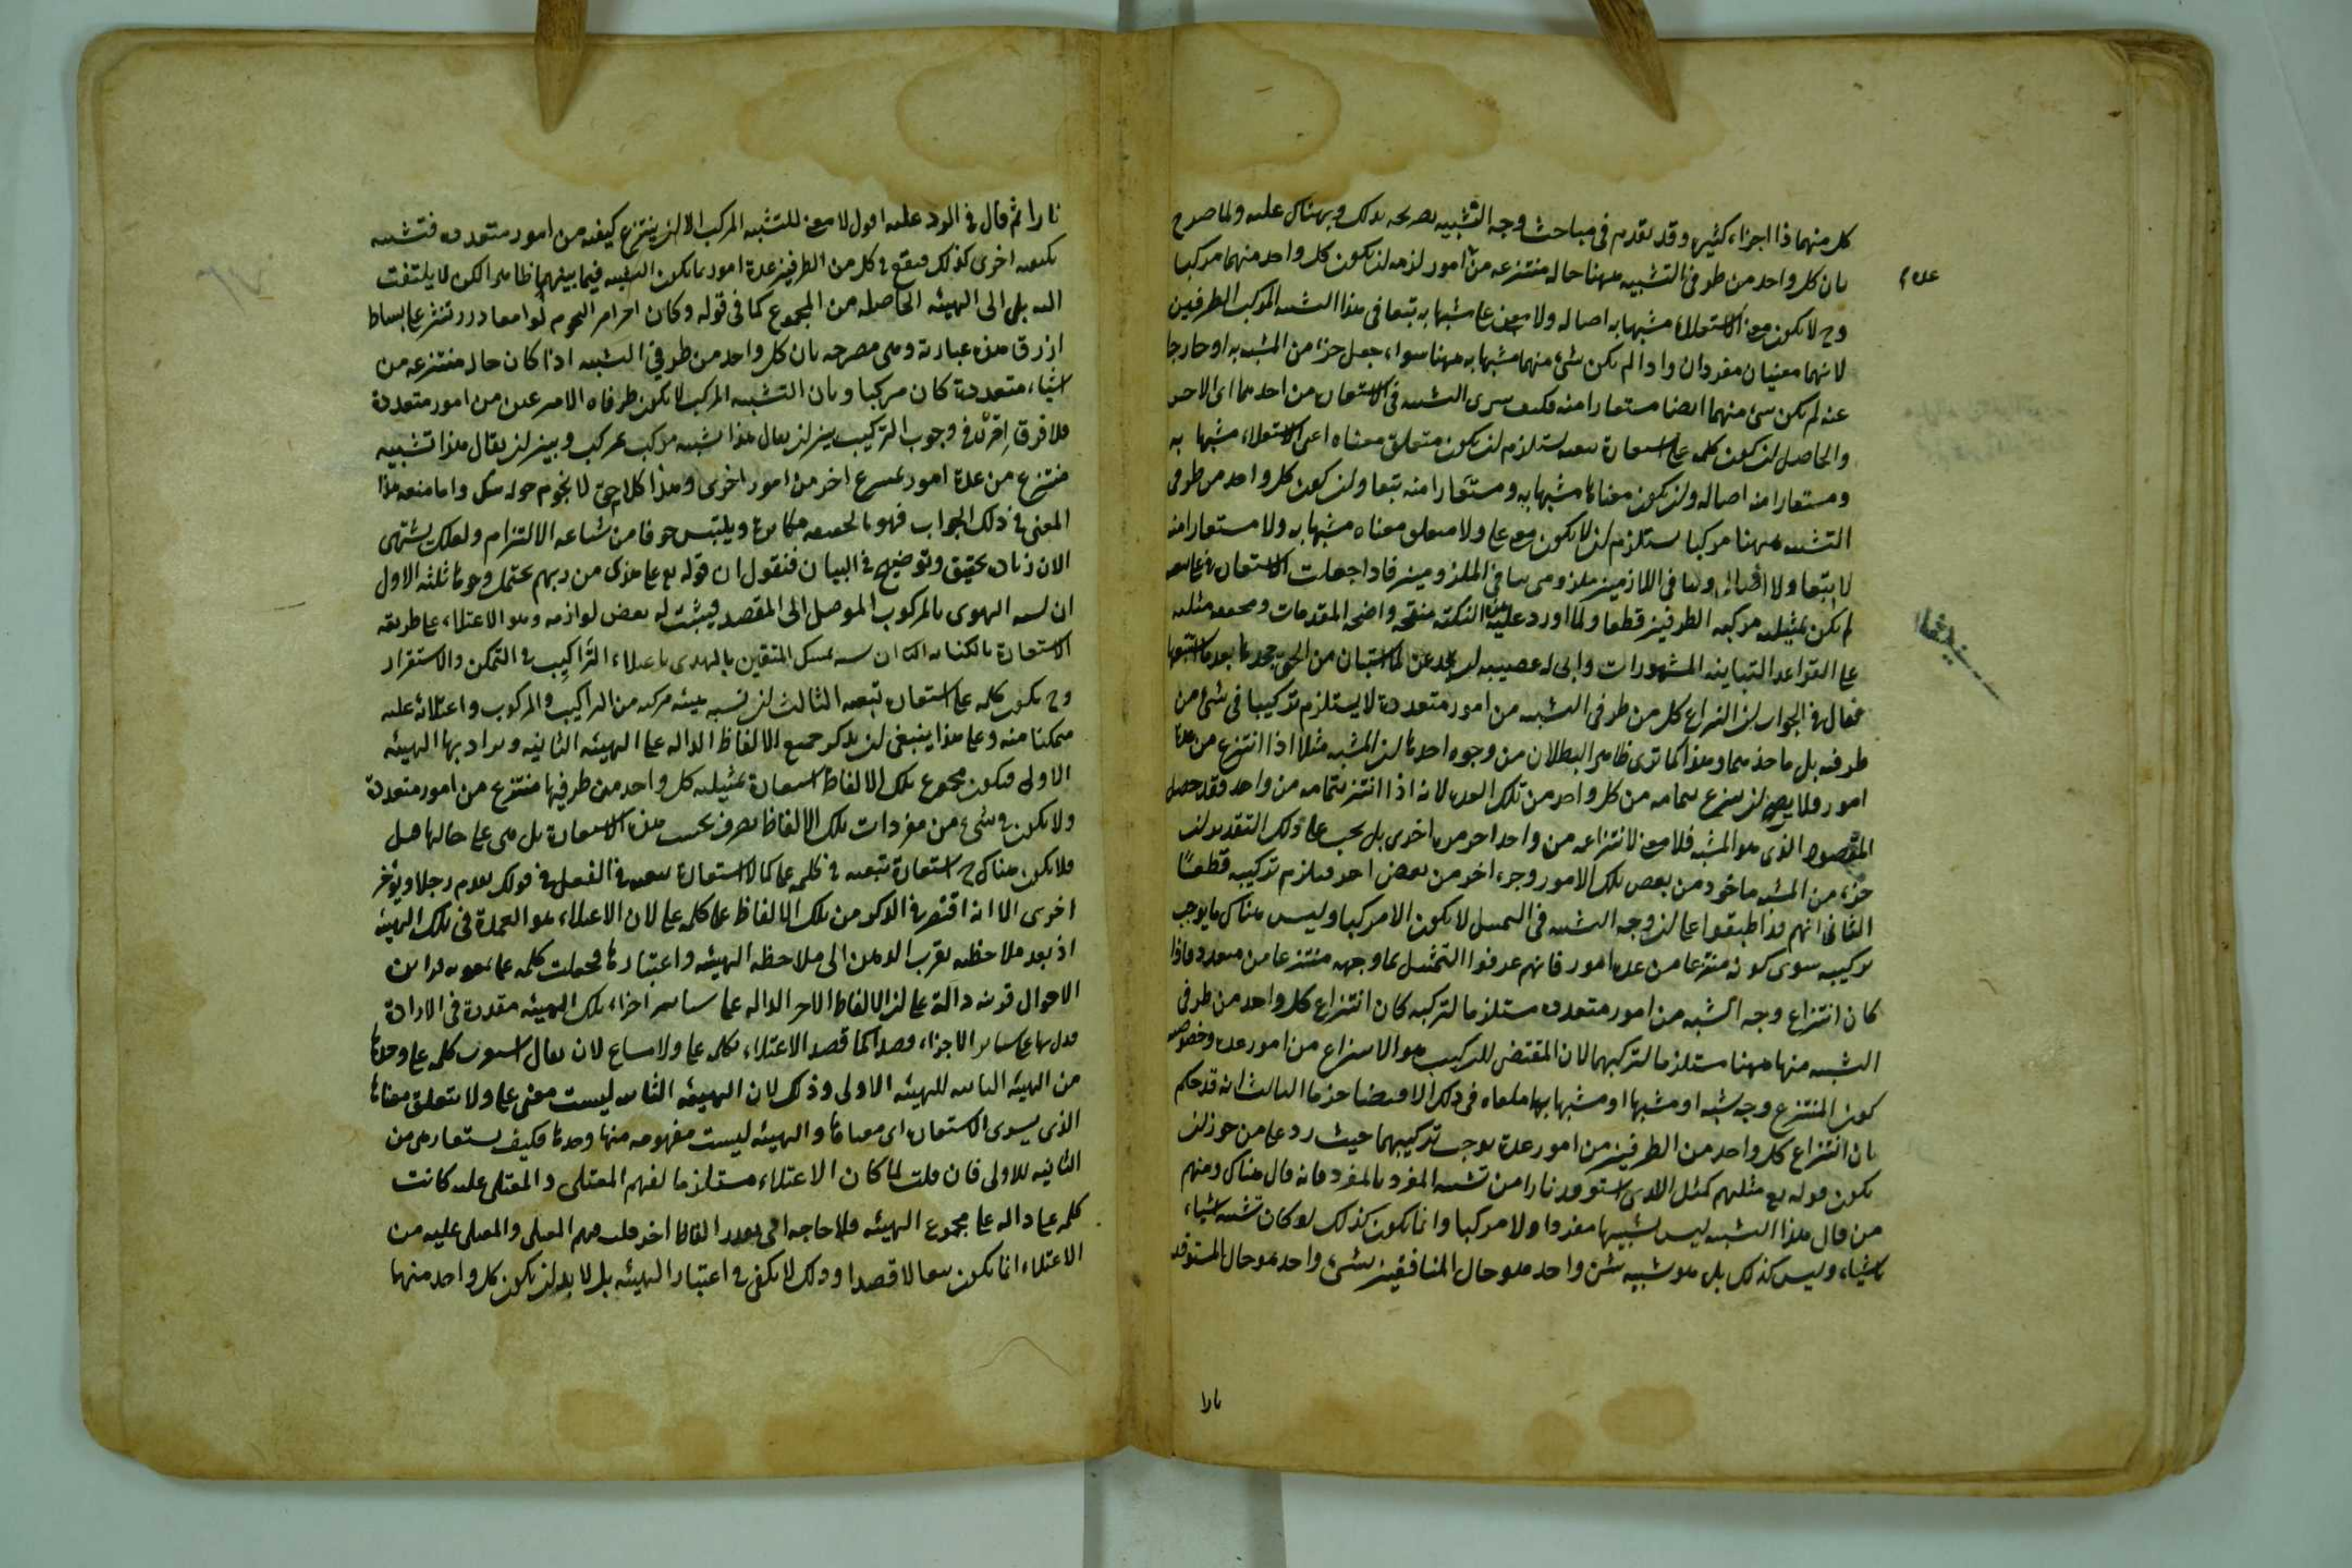 كل منهما ذا اجزاء كثيرة وقد تقدم فى مباحث وجه التشبيه تصريحه بذلك وبهناك عليه ولما صرح
بان كل واحد من طرفى التشبيه ههنا حالة منتزعة من امور لزمه ان يكون كل واحد منهما مركبا
وح لا يكون معنى الاستعلاء مشبها به اصالة ولا معنى على مشبها به تبعا فى هذا التشبيه المركب الطرفين
لانهما معنيان مفردان واذا لم يكن شئ منهما مشبها به ههنا سواء جعل جزء من المشبه به او خارجا
عنه لم يكن شئ منهما ايضا مستعارا منه فكيف سرى التشبيه فى الاستعارة من احدهما الى الاخر
والحاصل ان كون كلمة على استعارة تبعية يستلزم ان يكون متعلق معناه اعنى الاستعلاء مشبها به
ومستعارا منه اصالة وان يكون معناها مشبها به ومستعارا منه تبعا وان كون كل واحد من طرفى
التشبيه ههنا مركبا يستلزم ان لا يكون معنى على ولا متعلق معناه مشبها به ولا مستعارا منه
لا تبعا ولا اصالة وتنافى اللازمين ملزوم تنافى الملزومين فاذا جعلت الاستعارة فى على تبعية
لم يكن تمثيلية مركبة الطرفين قطعا ولما اورد عليه هذه النكتة منقحة واضحة المقدمات
على القواعد البيانية المشهورات وابى له عصبيته
فقال فى الجواب ان انتزاع كل من طرفى التشبيه من امور متعددة لا يستلزم تركيبا فى شئ من
طرفيه بل ماخذهما وهذا كما ترى ظاهر البطلان من وجوه احدها ان المشبه مثلا اذا انتزع من عدة
امور فلا يصح ان ينتزع بتمامه من كل واحد من تلك العدة لانه اذا انتزع بتمامه من واحد فقد حصل
المقصود الذى هو المشبه فلا معنى لانتزاعه من واحد اخر مرة اخرى بل يجب على ذلك التقدير ان يكون
جزء من المشبه ماخوذ من بعض تلك الامور وجزء اخر من بعض اخر فيلزم تركيبه قطعا
الثانى انهم قد اطبقوا على ان وجه التشبيه فى التمثيل لا يكون الا مركبا وليس هناك ما يوجب
تركيبه سوى كونه منتزعا من عدة امور فانهم عرفوا التمثيل بما وجهه منتزعا من متعدد فاذا
كان انتزاع وجه الشبه من امور متعددة مستلزما لتركبه كان انتزاع كل واحد من طرفى
التشبيه منها ههنا مستلزما لتركبهما لان المقتضى للتركيب هو الانتزاع من امور عدة وخصوص
كون المنتزع وجه شبه او مشبها او مشبها بها ملغاة فى ذلك الاقتضا جزما الثالث انه قد حكم
بان انتزاع كل واحد من الطرفين من امور عدة يوجب تركيبهما حيث رد على من جوز ان
يكون قوله تع مثلهم كمثل الذى استوقد نارا من تشبيه المفرد بالمفرد فانه قال هناك ومنهم
من قال هذا التشبيه ليس تشبيها مفردا ولا مركبا وانما يكون كذلك لو كان تشبيه اشياء
باشياء وليس كذلك بل هو تشبيه شئ واحد هو حال المنافقين بشئ واحد هو حال المستوقد
نارا
نارا ثم قال فى الرد عليه اقول لا معنى للتشبيه المركب الا ان ينتزع كيفية من امور متعددة فتشبه
بكيفية اخرى كذلك فيقع فى كل من الطرفين عدة امور ربما يكون التشبيه فيما بينهما ظاهرا لكن لا يلتفت
اليه بل الى الهيئة الحاصلة من المجموع كما فى قوله وكان اجرام النجوم لوامعا درر نثرن على بساط
ازرق هذه عبارته وهى مصرحة بان كل واحد من طرفى التشبيه اذا كان حالة منتزعة من
اشياء متعددة كان مركبا وبان التشبيه المركب لا يكون طرفاه الا منتزعين من امور متعددة
فلا فرق اذن فى وجوب التركيب بين ان يقال هذا تشبيه مركب بمركب وبين ان يقال هذا تشبيه
منتزع من عدة امور بمنتزع اخر من امور اخرى وهذا كلام حق لا يحوم حوله شك واما منعه هذا
المعنى فى ذلك الجواب فهو بالحقيقة مكابرة وتلبس خوفا من شناعة الالتزام ولعلك تشتهى
الان زيادة تحقيق وتوضيح فى البيان فنقول ان قوله تع على هدى من ربهم يحتمل وجوها ثلثة الاول
ان يشبه الهدى بالمركوب الموصل الى المقصد فيثبت له بعض لوازمه وهو الاعتلاء على طريقة
الاستعارة بالكناية الثانى ان يشبه تمسك المتقين بالهدى باعتلاء الراكب فى التمكن والاستقرار
وح يكون كلمة على استعارة تبعية الثالث ان يشبه هيئة مركبة من الراكب والمركوب واعتلائه عليه
متمكنا منه وعلى هذا ينبغى ان يذكر جميع الالفاظ الدالة على الهيئة الثانية ويراد بها الهيئة
الاولى فيكون مجموع تلك الالفاظ استعارة تمثيلية كل واحد من طرفيها منتزع من امور متعددة
ولا يكون فى شئ من مفردات تلك الالفاظ تصرف بحسب هذه الاستعارة بل هى على حالها قبل
فلا يكون هناك ح استعارة تبعية فى كلمة على كما لا استعارة تبعية فى الفعل فى قولك يقدم رجلا ويؤخر
اخرى الا انه اقتصر فى الذكر من تلك الالفاظ على كلمة على لان الاعتلاء هو العمدة فى تلك الهيئة
اذ بعد ملاحظته يقرب الذهن الى ملاحظة الهيئة واعتبارها فجعلت كلمة على بمعونة قراين
الاحوال قرينة دالة على ان الالفاظ الاخر الدالة على سائر اجزاء تلك الهيئة مقدرة فى الارادة
فدل بها على سائر الاجزاء قصدا كما قصد الاعتلاء بكلمة على ولا مساغ لان يقال استعيرت كلمة على وحدها
من الهيئة الثانية للهيئة الاولى وذلك لان الهيئة الثانية ليست معنى على ولا متعلق معناها
الذى يسرى الاستعارة الى معناها والهيئة ليست مفهومة منها وحدها فكيف يستعار هى من
الثانية للاولى فان قلت لما كان الاعتلاء مستلزما لفهم المعتلى والمعتلى عليه كانت
كلمة على دالة على مجموع الهيئة فلا حاجة الى تقدير الفاظ اخر قلت فهم المعتلى والمعتلى عليه من
الاعتلاء انما يكون تبعا لا قصدا وذلك لا يكفى فى اعتبار الهيئة بل لا بد ان يكون كل واحد منهما